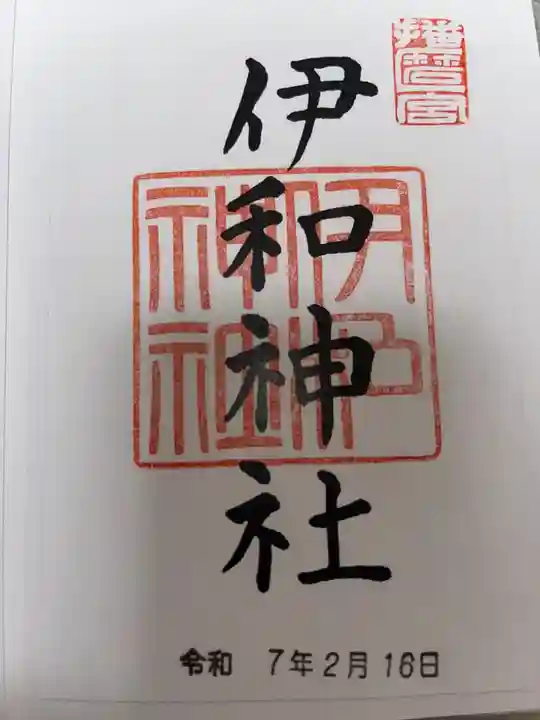 播磨宮
伊和神社
伊和
神社
令和 7年2月16日